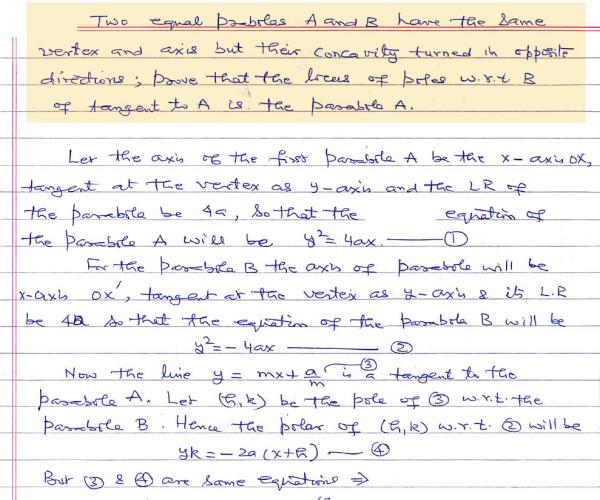 Two equal parabolas A and B have the same
vertex and axis but their concavity turned in opposite
directions; prove that the locus of poles w.r.t B
of tangent to A is the parabola A.
Let the axis of the first parabola A be the x-axis OX,
tangent at the vertex as y-axis and the LR of
the parabola be 4a, so that the equation of
the parabola A will be y²=4ax. ——— ①
For the parabola B the axis of parabola will be
x-axis OX', tangent at the vertex as y-axis & its L.R
be 4a so that the equation of the parabola B will be
y²=-4ax ——— ②
Now the line y = mx+a/m ③ is a tangent to the
parabola A. Let (h,k) be the pole of ③ w.r.t. the
parabola B. Hence the polar of (h,k) w.r.t. ② will be
yk=-2a(x+h) — ④
But ③ & ④ are same equations ⇒